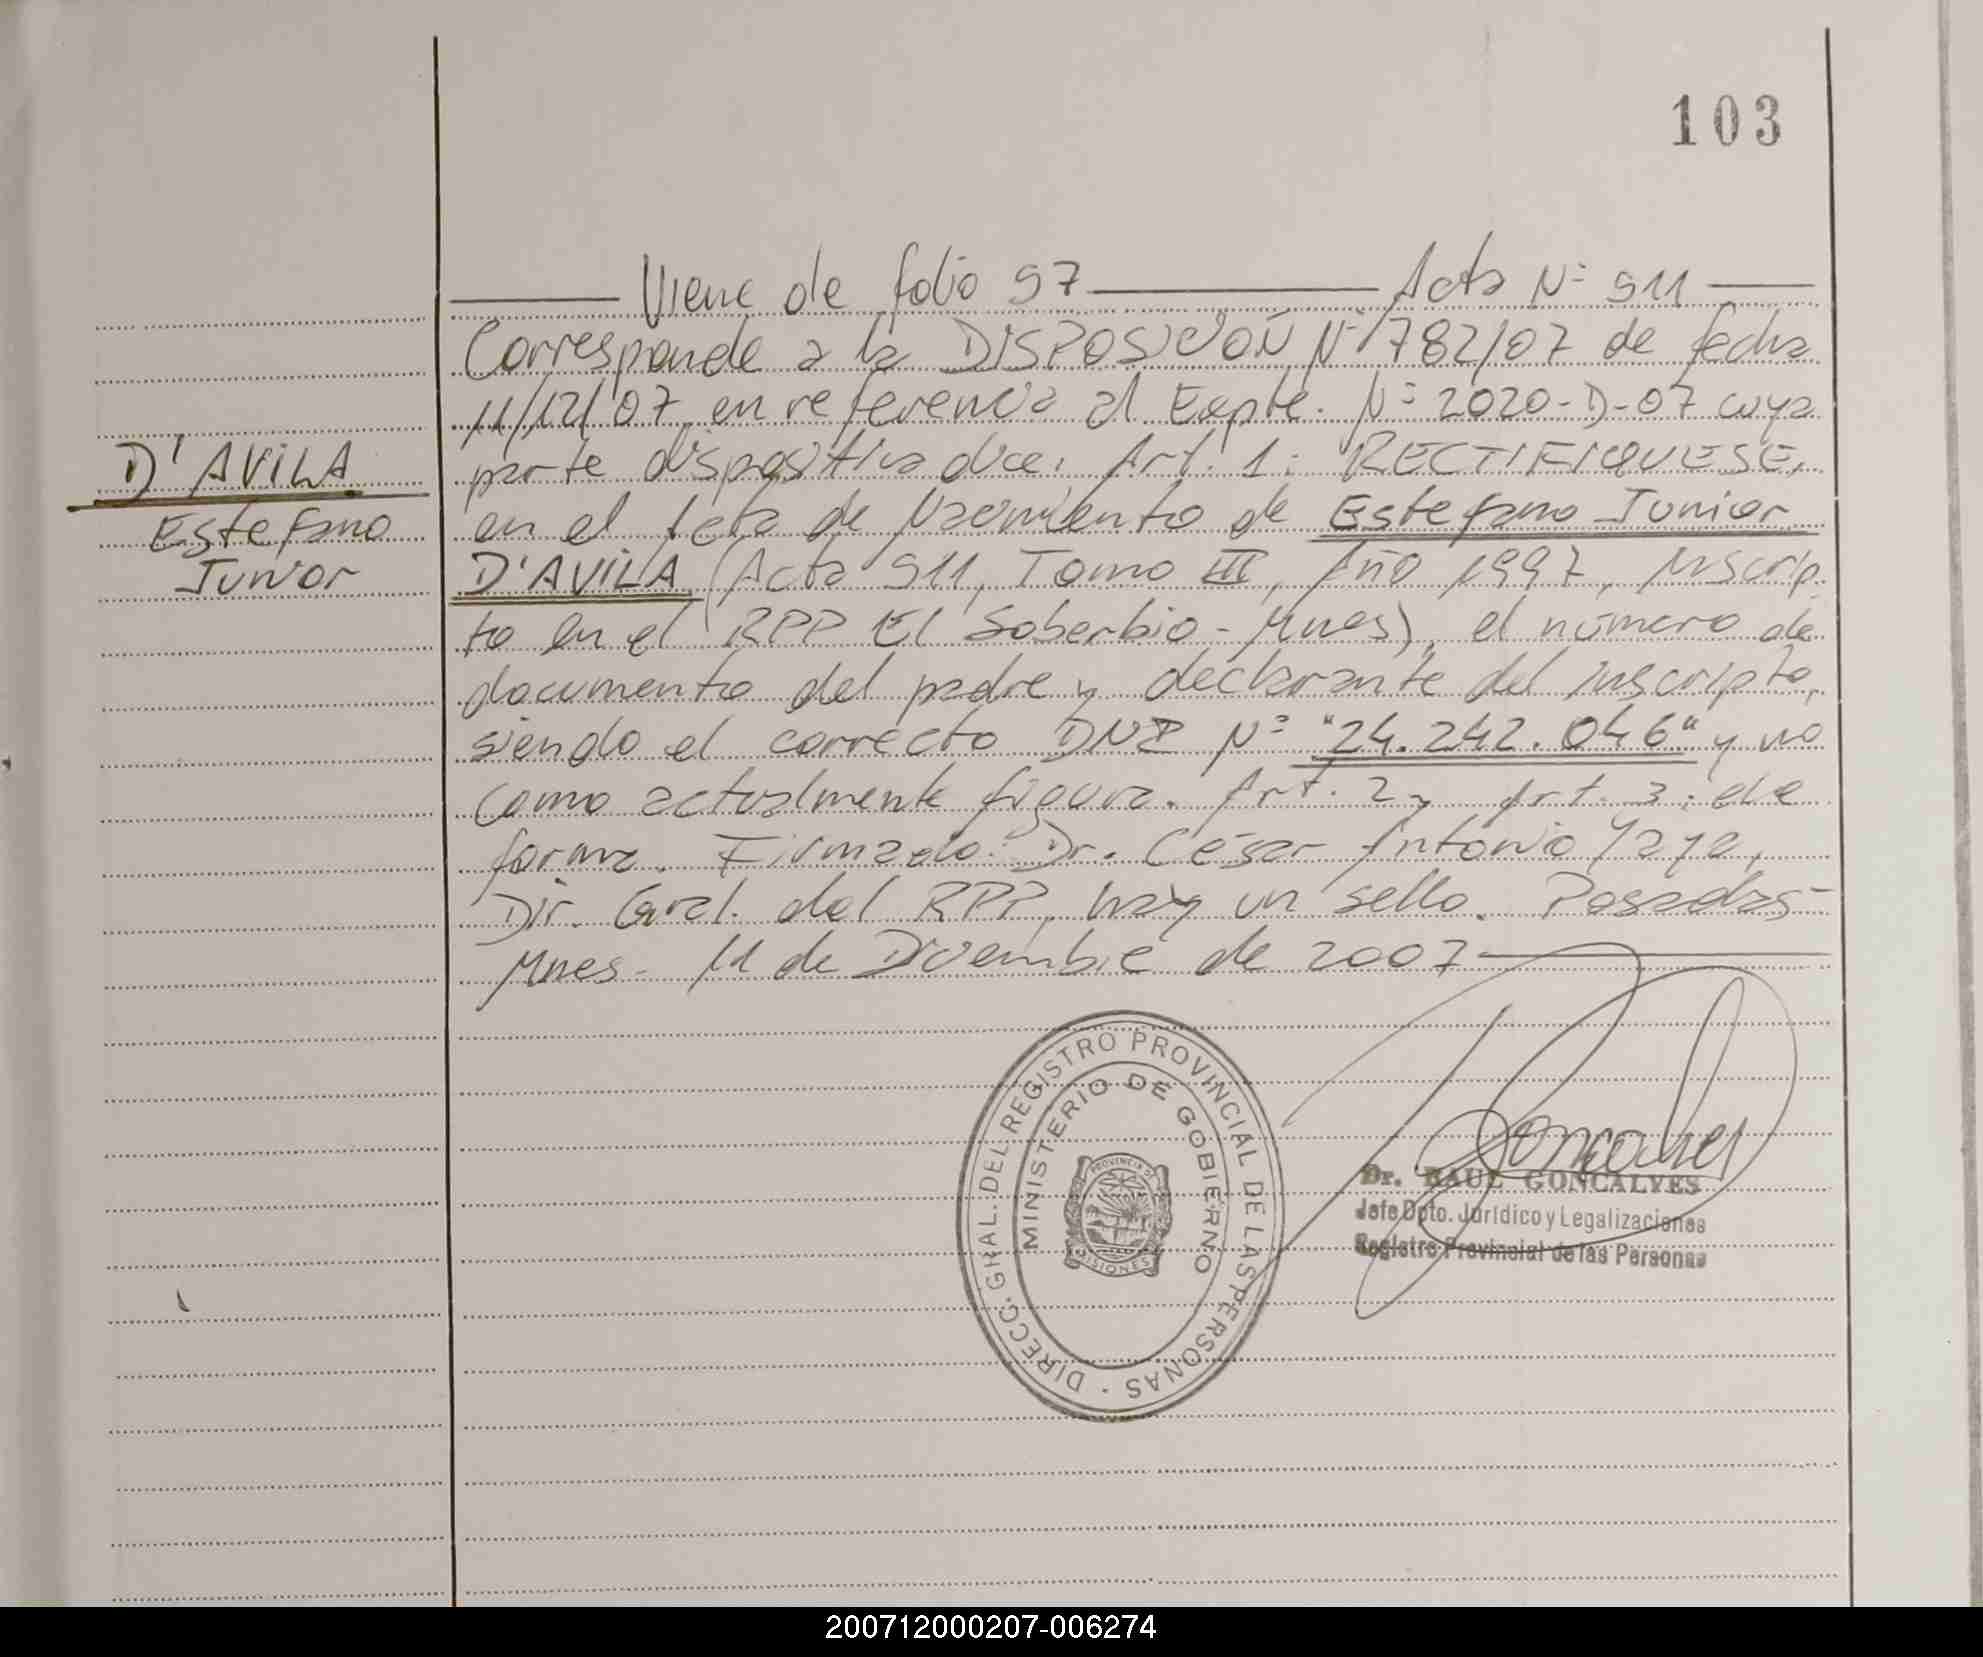 103
Viene de folio 97 Acta Nº 911
Corresponde a la DISPOSICIÓN Nº 782/07 de fecha
11/12/07 en referencia al Expte. Nº 2020-D-07 cuya
parte dispositiva dice: Art. 1: RECTIFIQUESE,
en el Acta de Nacimiento de Estefano Junior
D'AVILA (Acta 911, Tomo III, Año 1997, Inscrip-
to en el RPP El Soberbio - Mnes), el número de
documento del padre y declarante del inscripto,
siendo el correcto DNI Nº "24.242.046" y no
como actualmente figura. Art. 2 y Art. 3: de
forma. Firmado: Dr. César Antonio Yaya,
Dir. Gral. del RPP, hay un sello. Posadas-
Mnes- 11 de Diciembre de 2007
D'AVILA
Estefano
Junior
DIRECC. GRAL. DEL REGISTRO PROVINCIAL DE LAS PERSONAS
MINISTERIO DE GOBIERNO
PROVINCIA DE
MISIONES
Goncalves
Dr. RAUL GONCALVES
Jefe Dpto. Jurídico y Legalizaciones
Registro Provincial de las Personas
200712000207-006274